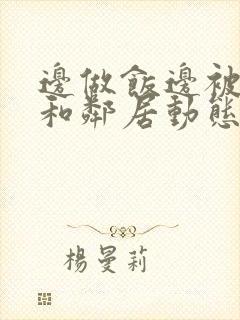 邊做飯邊被
和鄰居動態
楊曼莉